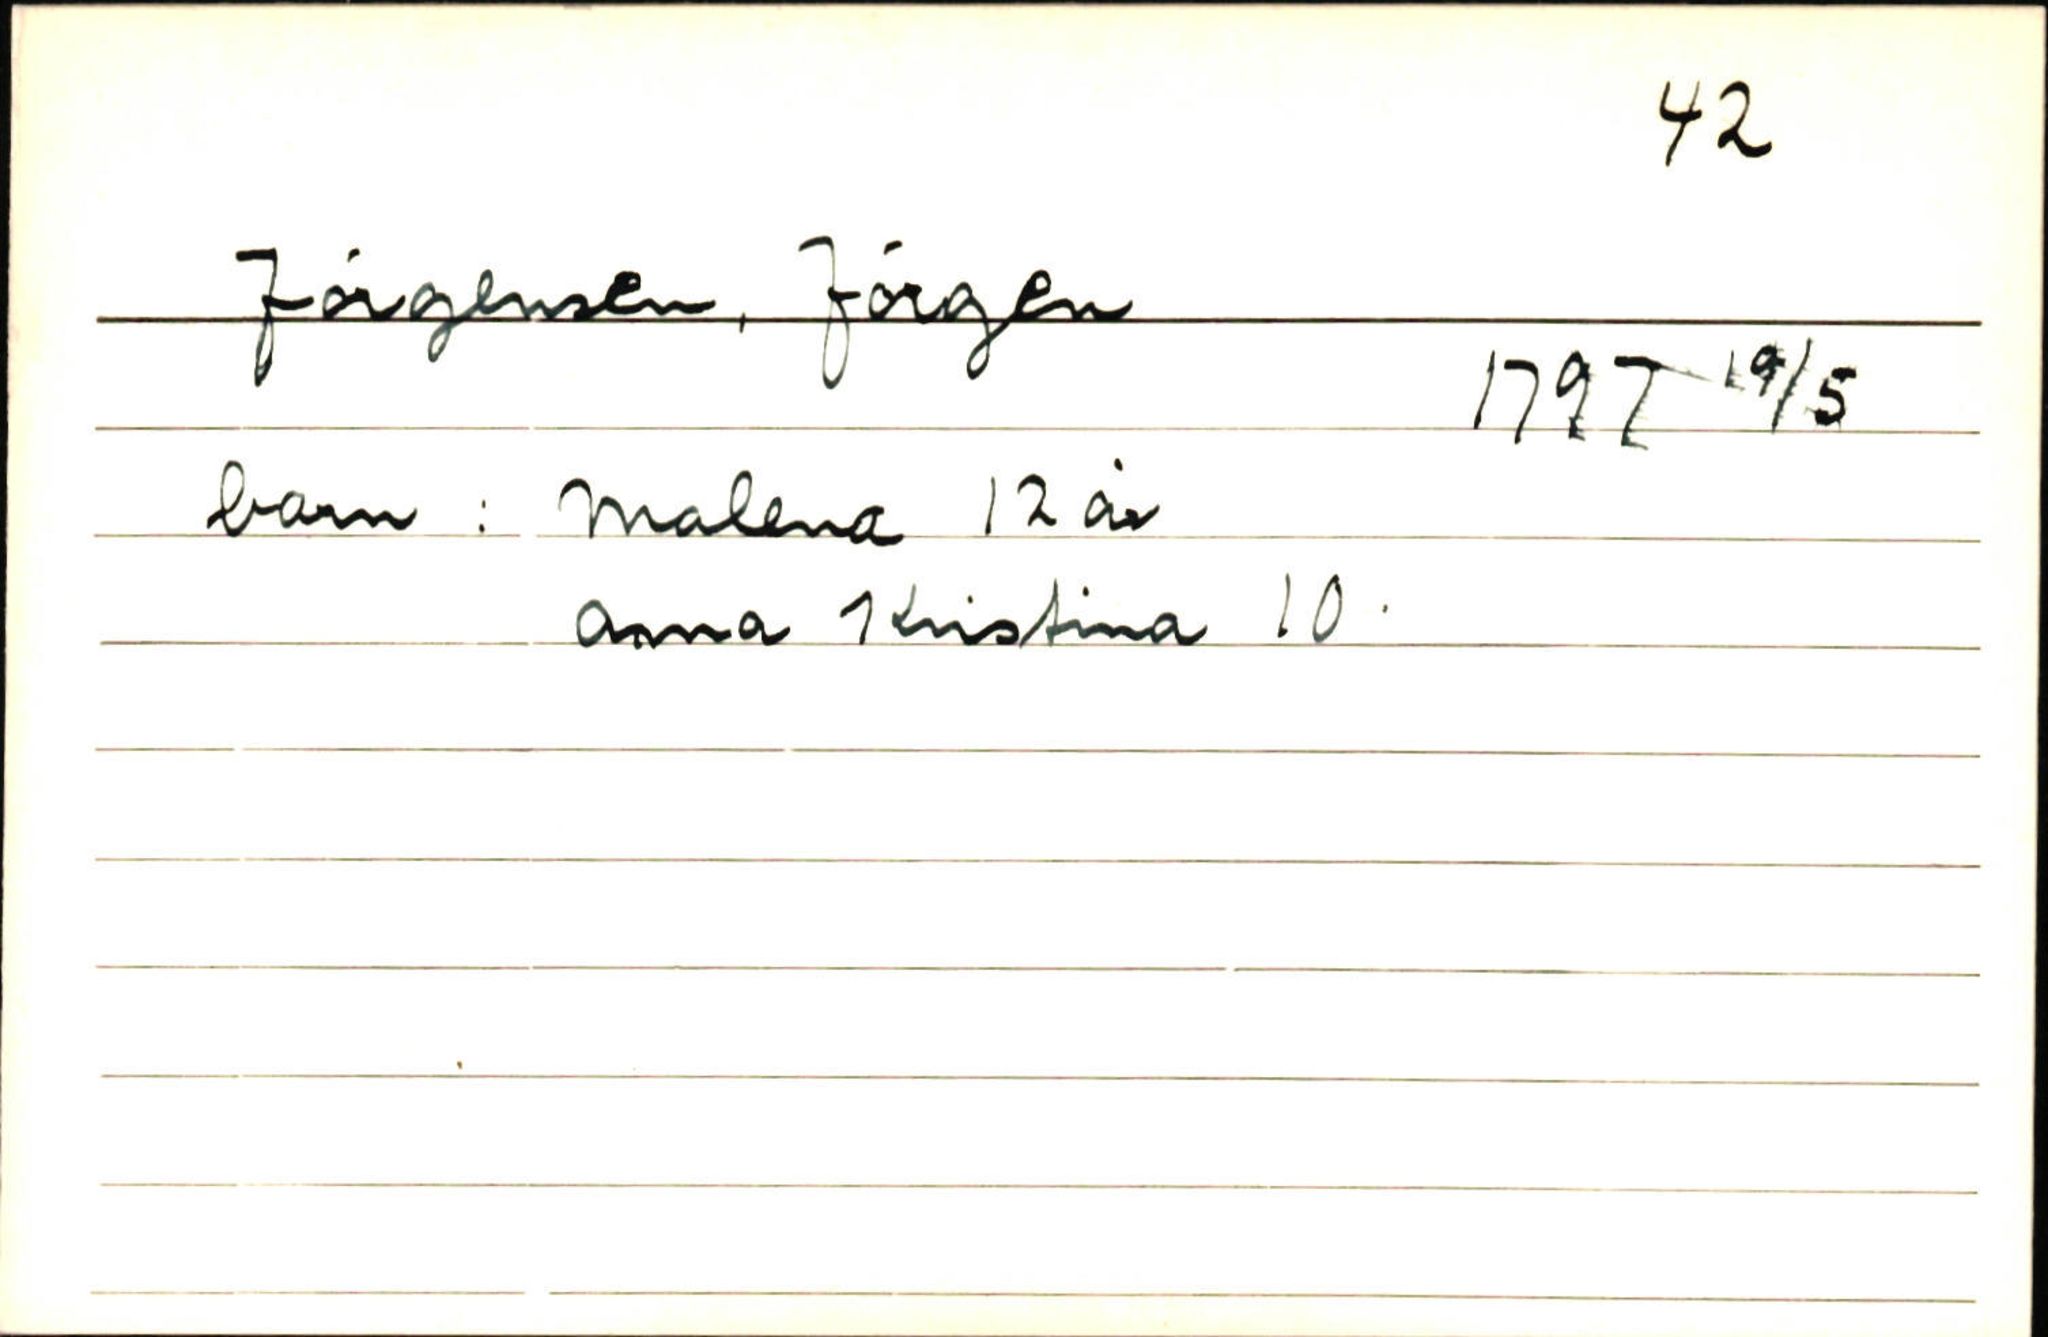 42
Jörgensen, Jörgen
1797 19/5
barn : Malena 12 år
Anna Kristina 10.